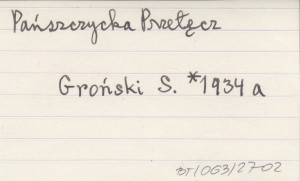 Pańszczycka Przełęcz
Groński S. *1934 a
BT/063/27-02